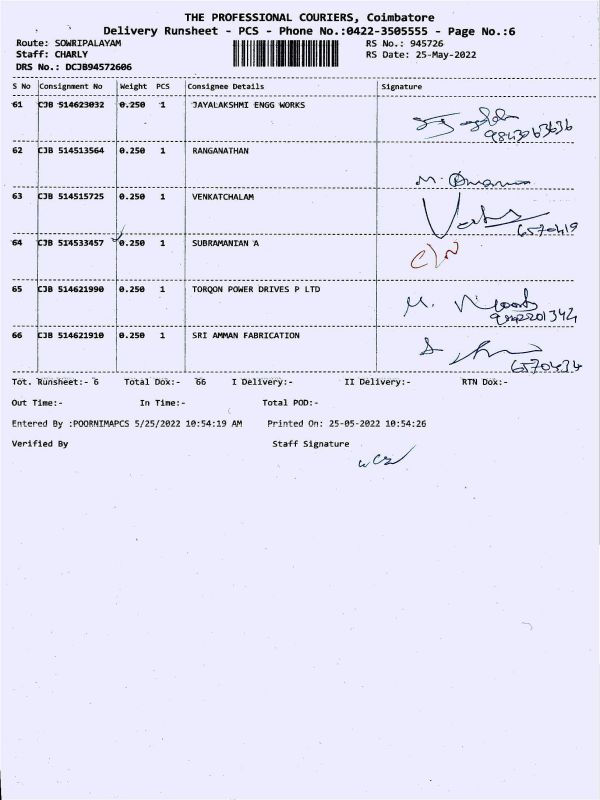 THE PROFESSIONAL COURIERS, Coimbatore
Delivery Runsheet - PCS - Phone No.:0422-3505555 - Page No.:6
Route: SOWRIPALAYAM RS No.: 945726
Staff: CHARLY RS Date: 25-May-2022
DRS No.: DCJB94572606
S No Consignment No Weight PCS Consignee Details Signature
61 CJB 514623032 0.250 1 JAYALAKSHMI ENGG WORKS
9843063636
62 CJB 514513564 0.250 1 RANGANATHAN
M.
63 CJB 514515725 0.250 1 VENKATCHALAM
6570419
64 CJB 514533457 0.250 1 SUBRAMANIAN A
65 CJB 514621990 0.250 1 TORQON POWER DRIVES P LTD
M.
66 CJB 514621910 0.250 1 SRI AMMAN FABRICATION
6570434
Tot. Runsheet:- 6 Total Dox:- 66 I Delivery:- II Delivery:- RTN Dox:-
Out Time:- In Time:- Total POD:-
Entered By :POORNIMAPCS 5/25/2022 10:54:19 AM Printed On: 25-05-2022 10:54:26
Verified By Staff Signature